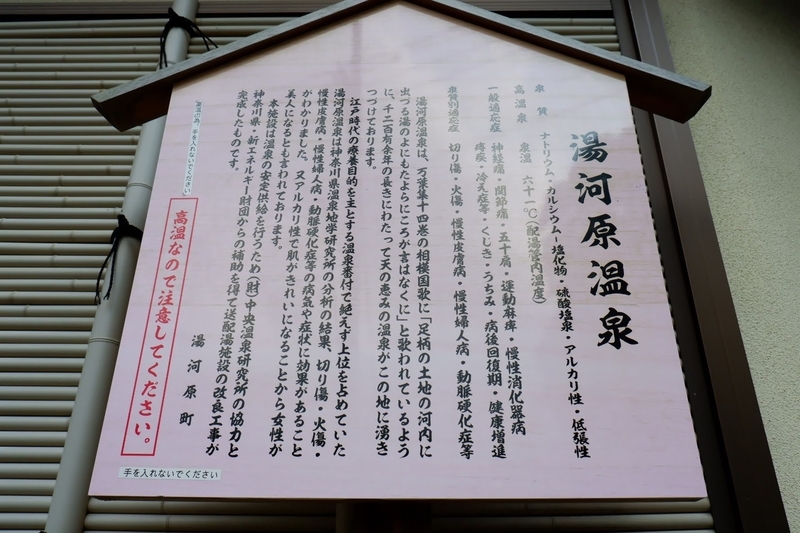 湯河原温泉
泉質 ナトリウム・カルシウム―塩化物・硫酸塩泉・アルカリ性・低張性
高温泉 泉温 六十一℃(配湯管内温度)
一般適応症 神経痛・関節痛・五十肩・運動麻痺・慢性消化器病
痔疾・冷え症等・くじき・うちみ・病後回復期・健康増進
泉質別適応症 切り傷・火傷・慢性皮膚病・慢性婦人病・動脈硬化症等
湯河原温泉は、万葉集十四巻の相模国歌に「足柄の土地の河内に
出づる湯のよにもたよらにころが言はなくに」と歌われているよう
に、千二百有余年の長さにわたって天の恵みの温泉がこの地に湧き
つづけております。
江戸時代の療養目的を主とする温泉番付で絶えず上位を占めていた
湯河原温泉は神奈川県温泉地学研究所の分析の結果、切り傷・火傷・
慢性皮膚病・慢性婦人病・動脈硬化症等の病気や症状に効果があること
がわかりました。又アルカリ性で肌がきれいになることから女性が
美人になるとも言われております。
本施設は温泉の安定供給を行うため(財)中央温泉研究所の協力と
神奈川県・新エネルギー財団からの補助を得て送配湯施設の改良工事が
完成したものです。
湯河原町
高温なので注意してください。
手を入れないでください
手を入れないでください